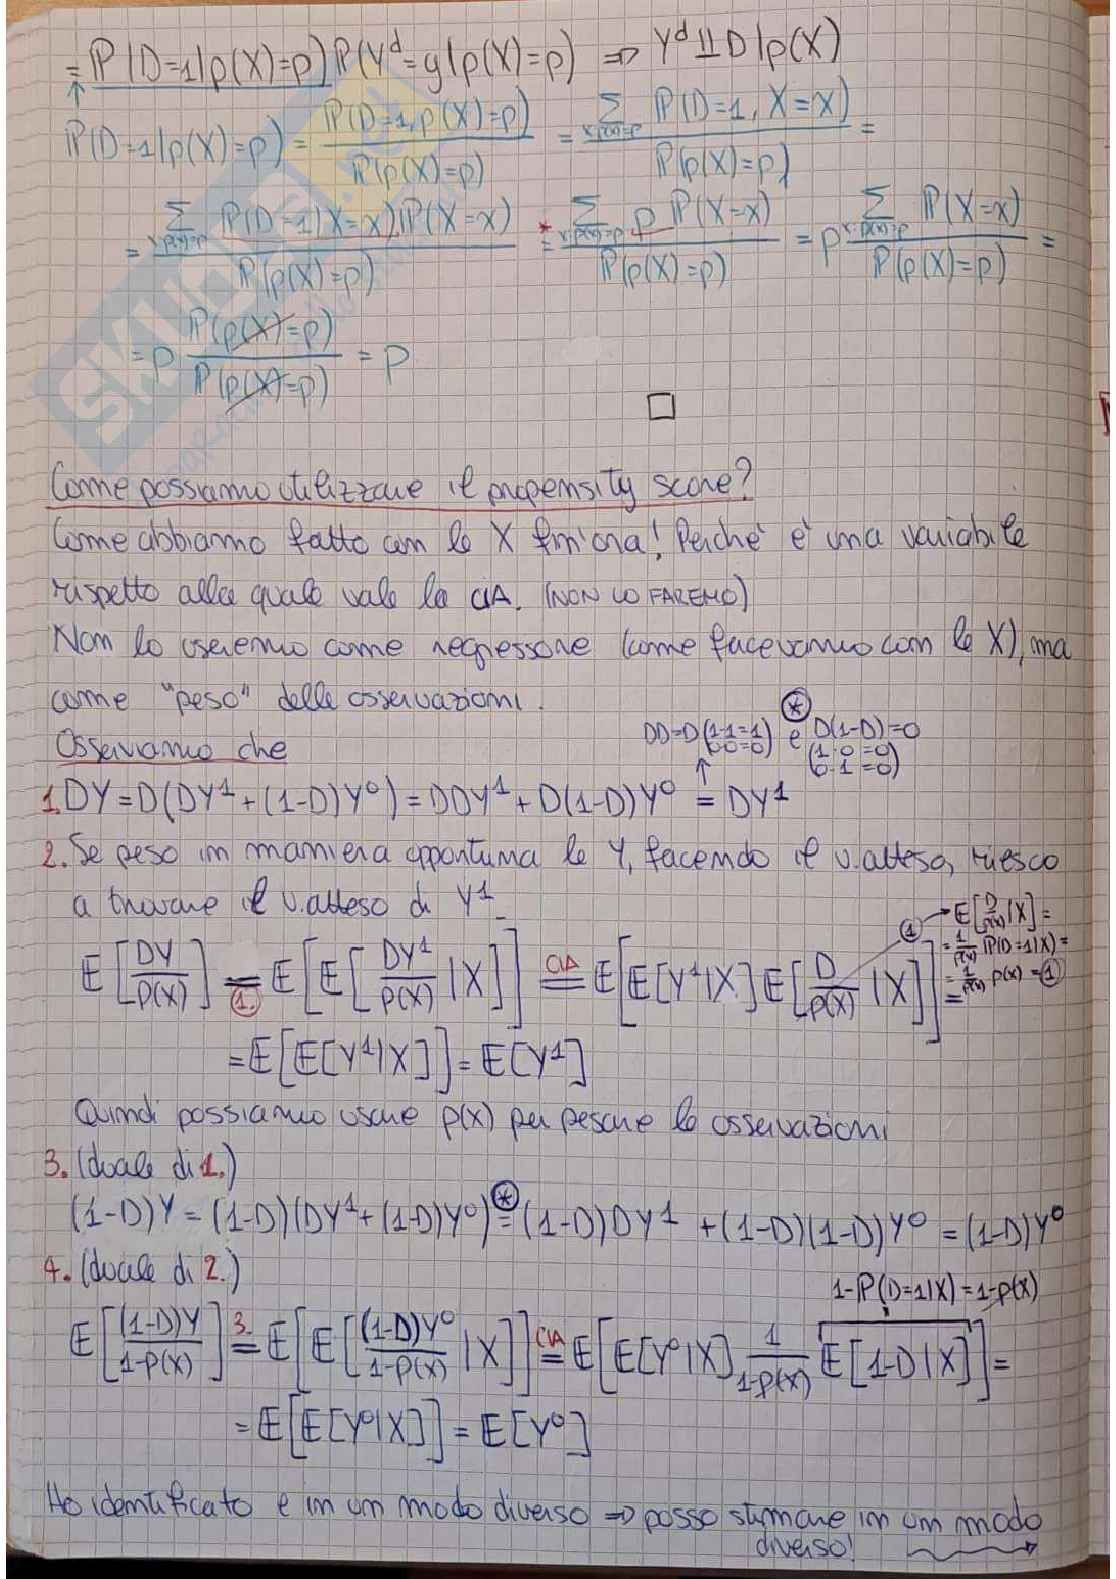 = P(D=1|p(X)=p) P(Y^d=y|p(X)=p) ⇒ Y^d ⫫ D|p(X)
↑
P(D=1|p(X)=p) = P(D=1, p(X)=p) / P(p(X)=p) = Σ_{x:p(x)=p} P(D=1, X=x) / P(p(X)=p) =
= Σ_{x:p(x)=p} P(D=1|X=x) P(X=x) / P(p(X)=p) =* Σ_{x:p(x)=p} p P(X=x) / P(p(X)=p) = p Σ_{x:p(x)=p} P(X=x) / P(p(X)=p) =
= p P(p(X)=p) / P(p(X)=p) = p
□
Come possiamo utilizzare il propensity score?
Come abbiamo fatto con le X fin'ora! Perché è una variabile
rispetto alla quale vale la CIA. (NON LO FAREMO)
Non lo useremo come regressore (come facevamo con le X), ma
come "peso" delle osservazioni.
Osserviamo che
DD=D (1·1=1) e D(1-D)=0 ⊛
(0·0=0) (1·0=0)
↑ (0·1=0)
1. DY = D(DY^1+(1-D)Y^0) = DDY^1 + D(1-D)Y^0 = DY^1
2. Se peso in maniera opportuna le Y, facendo il v.atteso, riesco
a trovare il v.atteso di Y^1
E[DY/p(X)] =(1.) E[E[DY^1/p(X) |X]] =CIA E[E[Y^1|X] E[D/p(X) |X]] =
① → E[D/p(X)|X] =
= 1/p(X) P(D=1|X) =
= 1/p(X) p(x) = ①
= E[E[Y^1|X]] = E[Y^1]
Quindi possiamo usare p(X) per pesare le osservazioni
3. (duale di 1.)
(1-D)Y = (1-D)(DY^1+(1-D)Y^0) =⊛ (1-D)DY^1 + (1-D)(1-D)Y^0 = (1-D)Y^0
4. (duale di 2.)
1-P(D=1|X)=1-p(X)
E[(1-D)Y/1-p(X)] =3. E[E[(1-D)Y^0/1-p(X) |X]] =CIA E[E[Y^0|X] 1/1-p(X) E[1-D|X]] =
= E[E[Y^0|X]] = E[Y^0]
Ho identificato e in un modo diverso ⇒ posso stimare in un modo
diverso!